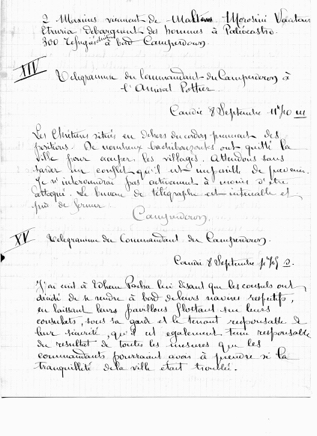 2 Marines venant de Malte Morosini
Etruria débarquant des hommes à Paléocastro.
300 réfugiés à bord Camperdown
XIV
Télégramme du Commandant du Camperdown à
l'Amiral Pottier.
Candie 8 Septembre
Les Chrétiens situés en dehors du cordon prennent des
positions. De nombreux bachibozouks ont quitté la
ville pour occuper les villages. Attendons sans
tarder un conflit qu'il est impossible de prévenir.
Je n'interviendrai pas activement à moins d'être
attaqué. Le bureau de télégraphe est intenable et
près de fermer.
Camperdown.
XV
Télégramme du Commandant du Camperdown.
Candie 8 Septembre
J'ai écrit à Edhem Pacha lui disant que les consuls ont
décidé de se rendre à bord de leurs navires respectifs,
en laissant leurs pavillons flottant sur leurs
consulats, sous sa garde et le tenant responsable de
leur sécurité, qu'il est également tenu responsable
du résultat de toutes les mesures que les
commandants pourraient avoir à prendre si la
tranquillité de la ville était troublée.